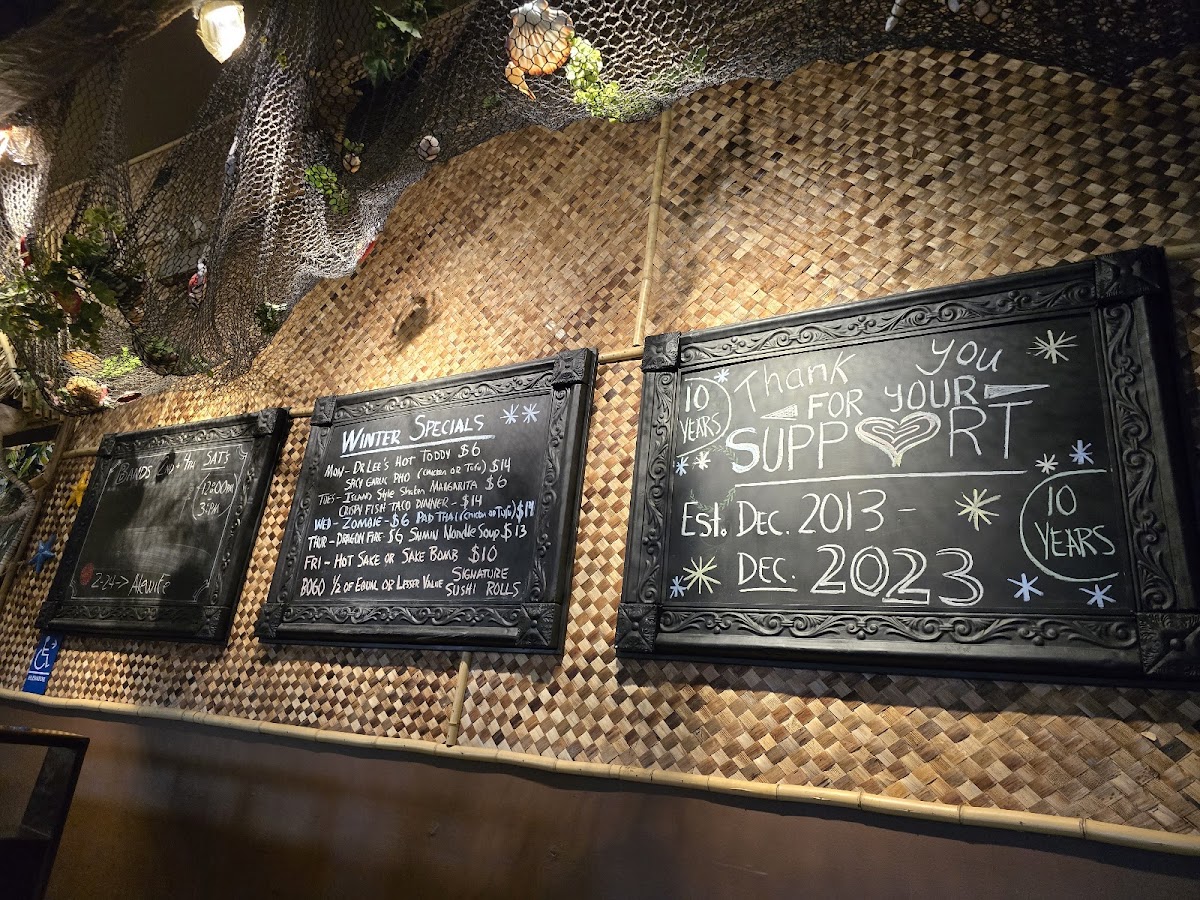 BANDS 2ND • 4TH SATS
12:00PM
3PM
2-24 -> Alewife
WINTER SPECIALS
MON - DR LEE'S HOT TODDY $6
SPICY GARLIC PHO (CHICKEN OR TOFU) $14
TUES - ISLAND STYLE SHAKEN MARGARITA $6
CRISPY FISH TACO DINNER - $14
WED - ZOMBIE - $6 PAD THAI (CHICKEN OR TOFU) $14
THUR - DRAGON FIRE - $6 SUMIN NOODLE SOUP $13
FRI - HOT SAKE OR SAKE BOMB $10
BOGO 1/2 OF EQUAL OR LESSER VALUE SIGNATURE
SUSHI ROLLS
10
YEARS
Thank you
FOR YOUR
SUPP♥RT
Est. DEC. 2013 -
DEC. 2023
10
YEARS